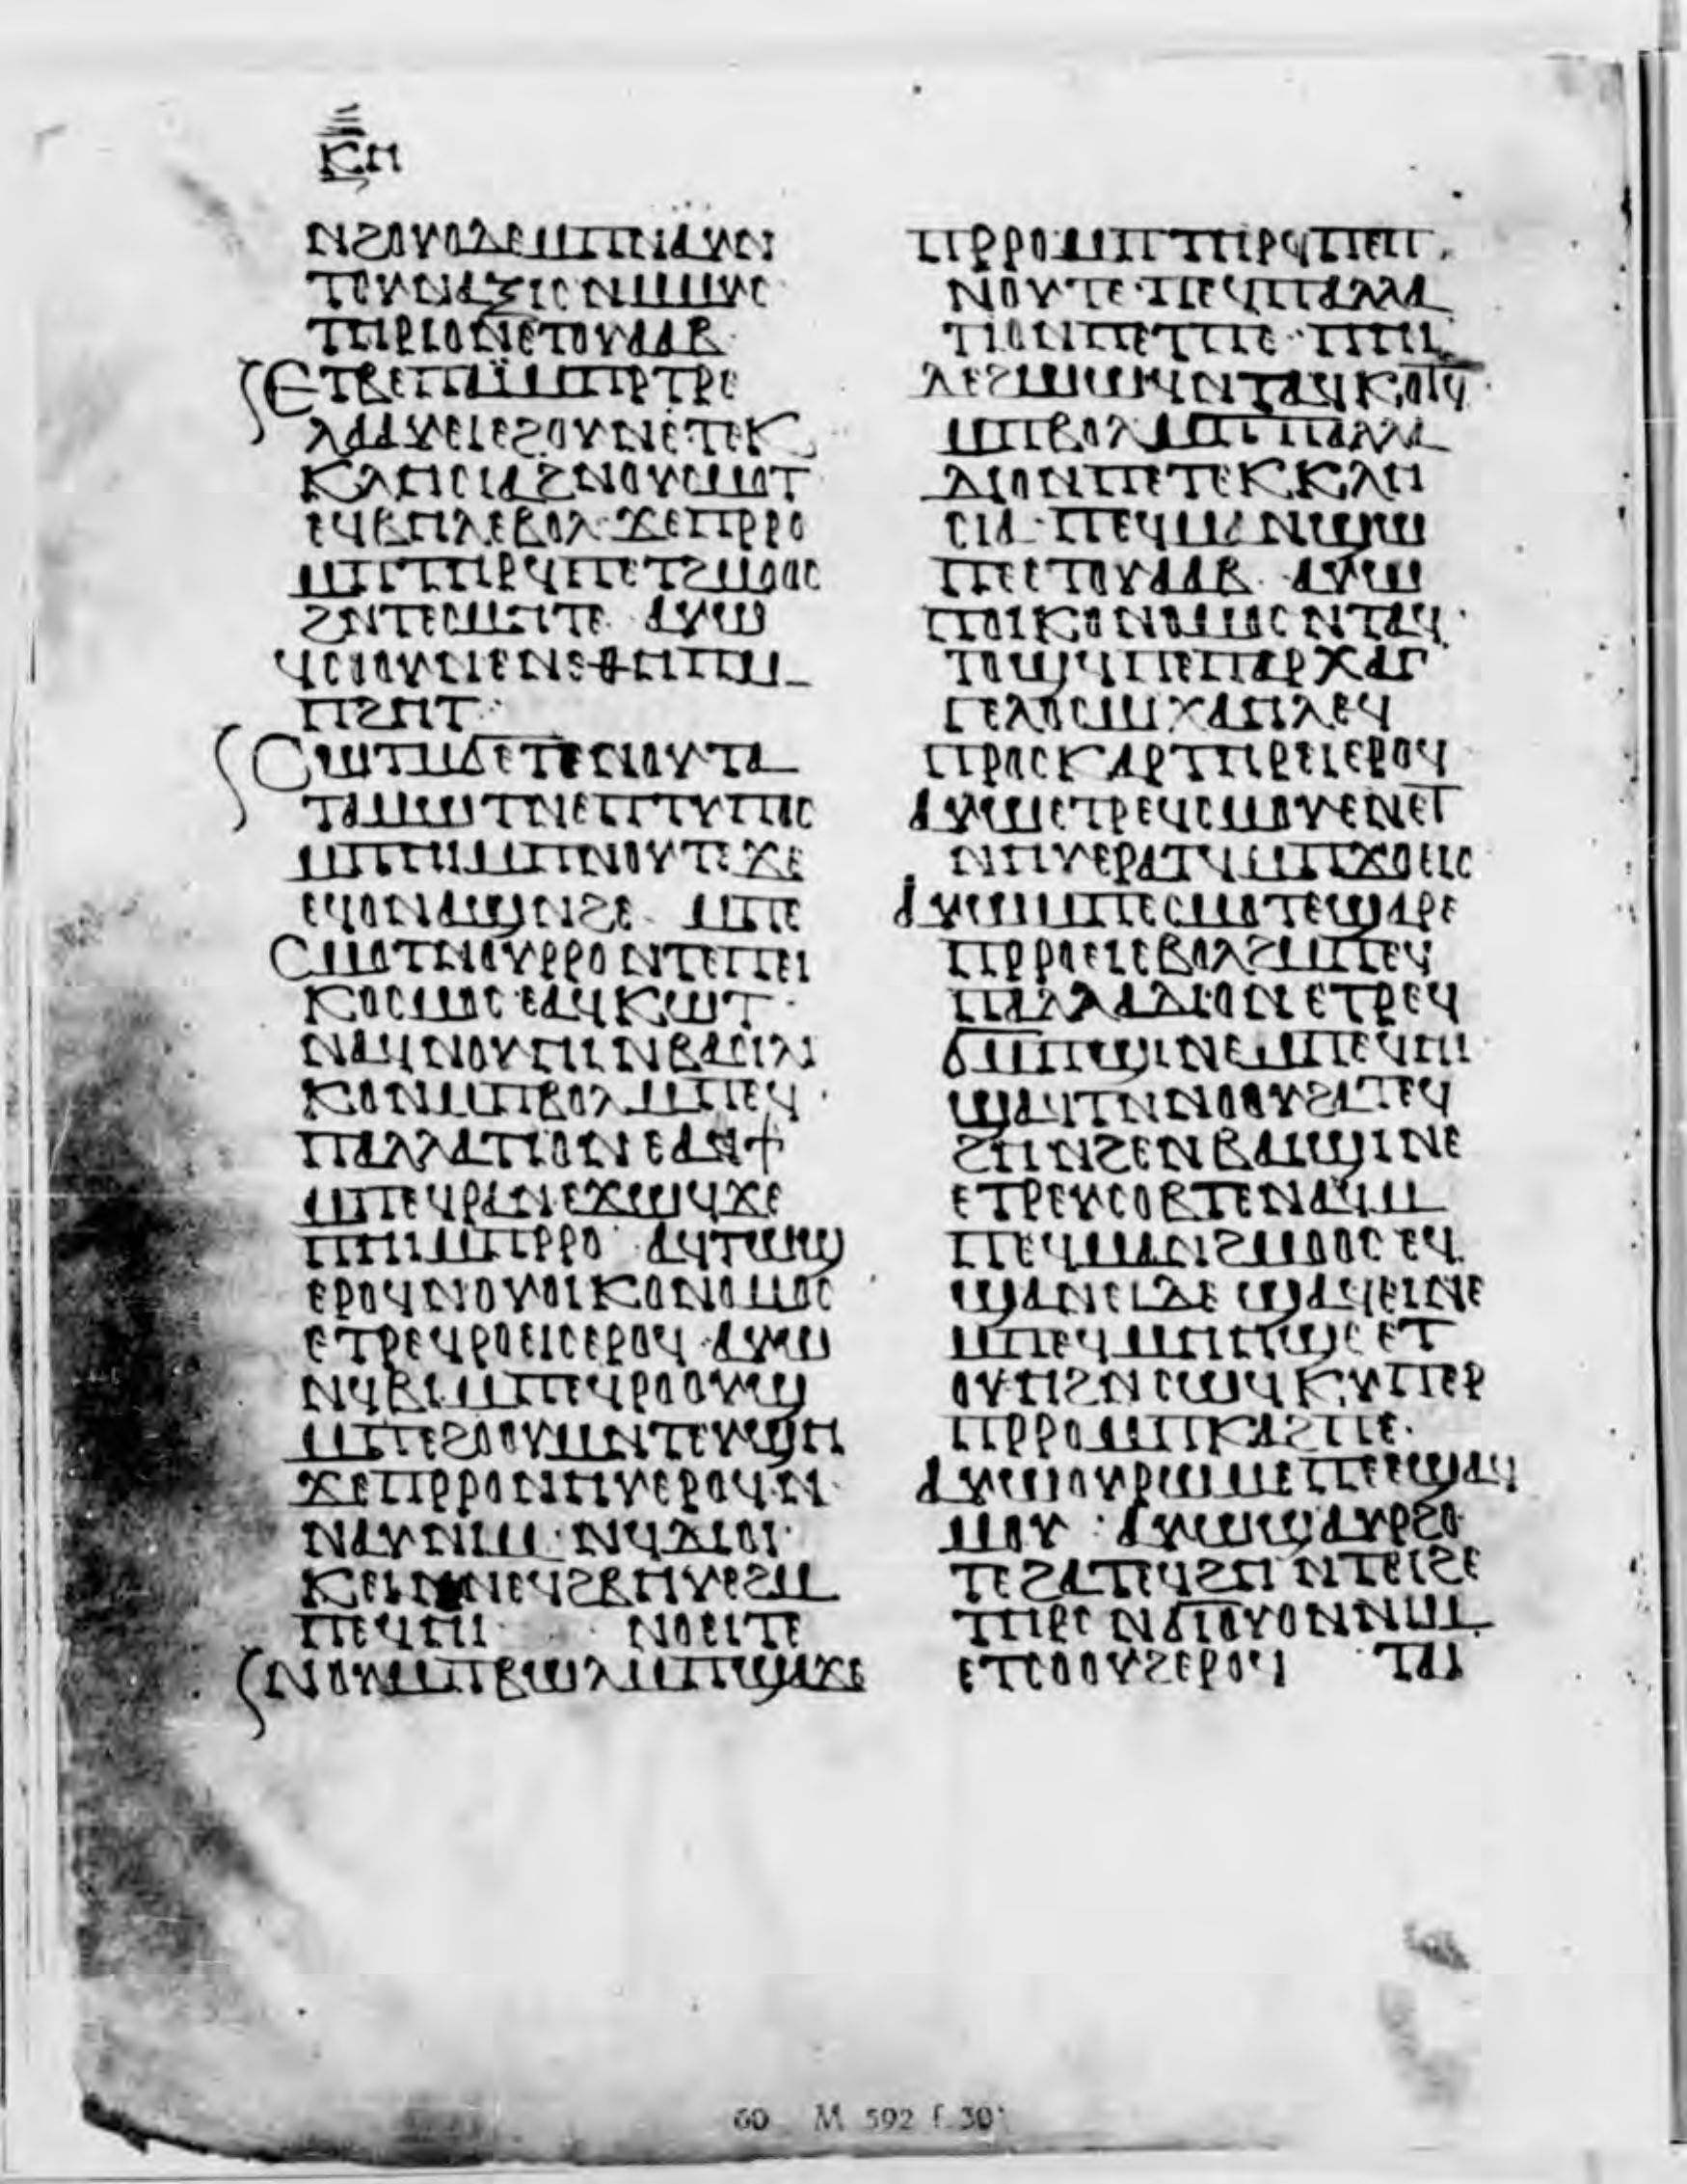 ⲕⲏ
ⲛϩⲟⲩⲟⲇⲉⲙⲡⲛⲁⲩⲛ
ⲧⲥⲩⲛⲁⲝⲓⲥⲛⲙⲙⲩⲥ
ⲧⲏⲣⲓⲟⲛⲉⲧⲟⲩⲁⲁⲃ
ⲉⲧⲃⲉⲡⲁⲓ̈ⲙⲡⲣⲧⲣⲉ
ⲗⲁⲁⲩⲉⲓⲉϩⲟⲩⲛⲉⲧⲉⲕ
ⲕⲗⲏⲥⲓⲁϩⲛⲟⲩⲥⲙⲟⲧ
ⲉϥⲃⲏⲗⲉⲃⲟⲗ·ϫⲉⲡⲣⲣⲟ
ⲙⲡⲧⲏⲣϥⲡⲉⲧϩⲙⲟⲟⲥ
ϩⲛⲧⲉⲥⲙⲏⲧⲉ ⲁⲩⲱ
ϥⲥⲟⲟⲩⲛⲛⲉⲛⲉⲑⲏⲡⲙ
ⲡϩⲏⲧ·
ⲥⲱⲧⲙϭⲉⲧⲉⲛⲟⲩⲧⲁ
ⲧⲁⲙⲱⲧⲛⲉⲡⲧⲩⲡⲟⲥ
ⲙⲡⲏⲓⲙⲡⲛⲟⲩⲧⲉϫⲉ
ⲉϥⲟⲛⲁϣⲛϩⲉ ⲙⲡⲉ
ⲥⲙⲟⲧⲛⲟⲩⲣⲣⲟⲛⲧⲉⲡⲉⲓ
ⲕⲟⲥⲙⲟⲥⲉⲁϥⲕⲱⲧ·
ⲛⲁϥⲛⲟⲩⲏⲓⲛⲃⲁⲥⲓⲗⲓ
ⲕⲟⲛⲙⲡⲃⲟⲗⲙⲡⲉϥ
ⲡⲁⲗⲗⲁⲧⲓⲟⲛⲉⲁϥϯ
ⲙⲡⲉϥⲣⲁⲛⲉϫⲱϥϫⲉ
ⲡⲏⲓⲙⲡⲣⲣⲟ ⲁϥⲧⲱϣ
ⲉⲣⲟϥⲛⲟⲩⲟⲓⲕⲟⲛⲟⲙⲟⲥ
ⲉⲧⲣⲉϥⲣⲟⲉⲓⲥⲉⲣⲟϥ·ⲁⲩⲱ
ⲛϥϥⲓⲙⲡⲉϥⲣⲟⲟⲩϣ
ⲙⲡⲉϩⲟⲟⲩⲙⲛⲧⲉⲩϣⲏ
ϫⲉⲡⲣⲣⲟⲛⲏⲩⲉⲣⲟϥ·ⲛ
ⲛⲁⲩⲛⲓⲙ·ⲛϥϫⲓⲟⲓ
ⲕⲉⲓⲛⲛⲉϥϩⲃⲏⲩⲉϩⲙ
ⲡⲉϥⲏⲓ ⲛⲟⲉⲓⲧⲉ
ⲛⲟⲩⲙⲡⲃⲱⲗⲙⲡϣⲁϫⲉ
ⲡⲣⲣⲟⲙⲡⲧⲏⲣϥⲡⲉⲡ
ⲛⲟⲩⲧⲉ·ⲡⲉϥⲡⲁⲗⲗⲁ
ⲧⲓⲟⲛⲡⲉⲧⲡⲉ·ⲧⲡⲏ
ⲇⲉϩⲱⲱϥⲛⲧⲁϥⲕⲟⲧϥ
ⲙⲡⲃⲟⲗⲙⲡⲡⲁⲗⲗⲁ
ⲇⲓⲟⲛⲡⲉⲧⲉⲕⲕⲗⲏ
ⲥⲓⲁ·ⲡⲉϥⲙⲁⲛϣⲱ
ⲡⲉⲉⲧⲟⲩⲁⲁⲃ·ⲁⲩⲱ
ⲡⲟⲓⲕⲟⲛⲟⲙⲟⲥⲛⲧⲁϥ
ⲧⲟϣϥⲡⲉⲡⲁⲣⲭⲁⲅ
ⲅⲉⲗⲟⲥⲙⲓⲭⲁⲏⲗⲉϥ
ⲡⲣⲟⲥⲕⲁⲣⲧⲏⲣⲉⲓⲉⲣⲟϥ
ⲁⲩⲱⲉⲧⲣⲉϥⲥⲙⲟⲩⲉⲛⲉⲧ
ⲛⲏⲩⲉⲣⲁⲧϥⲙⲡϫⲟⲉⲓⲥ
ⲁⲩⲱⲙⲡⲉⲥⲙⲟⲧⲉϣⲁⲣⲉ
ⲡⲣⲣⲟⲉⲓⲉⲃⲟⲗϩⲙⲡⲉϥ
ⲡⲁⲗⲗⲁⲇⲓⲟⲛⲉⲧⲣⲉϥ
ϭⲙⲡϣⲓⲛⲉⲙⲡⲉϥⲏⲓ
ϣⲁϥⲧⲛⲛⲟⲟⲩϩⲁⲧⲉϥ
ϩⲏⲛϩⲉⲛⲃⲁⲓϣⲓⲛⲉ
ⲉⲧⲣⲉⲩⲥⲟⲃⲧⲉⲛⲁϥⲙ
ⲡⲉϥⲙⲁⲛϩⲙⲟⲟⲥⲉϥ
ϣⲁⲛⲉⲓⲇⲉϣⲁϥⲉⲓⲛⲉ
ⲙⲡⲉϥⲙⲏⲏϣⲉⲉⲧ
ⲟⲩⲏϩⲛⲥⲱϥⲕⲩⲡⲉⲣ
ⲡⲣⲣⲟⲙⲡⲕⲁϩⲡⲉ·
ⲁⲩⲱⲟⲩⲣⲱⲙⲉⲡⲉⲉϣⲁϥ
ⲙⲟⲩ·ⲁⲩⲱϣⲁⲩⲣϩⲟ
ⲧⲉϩⲁⲧⲉϥϩⲏⲛⲧⲉⲓϩⲉ
ⲧⲏⲣⲥⲛϭⲓⲟⲩⲟⲛⲛⲓⲙ
ⲉⲧⲥⲟⲟⲩϩⲉⲣⲟϥ ⲧⲁⲓ
60 M 592 f.30ᵛ